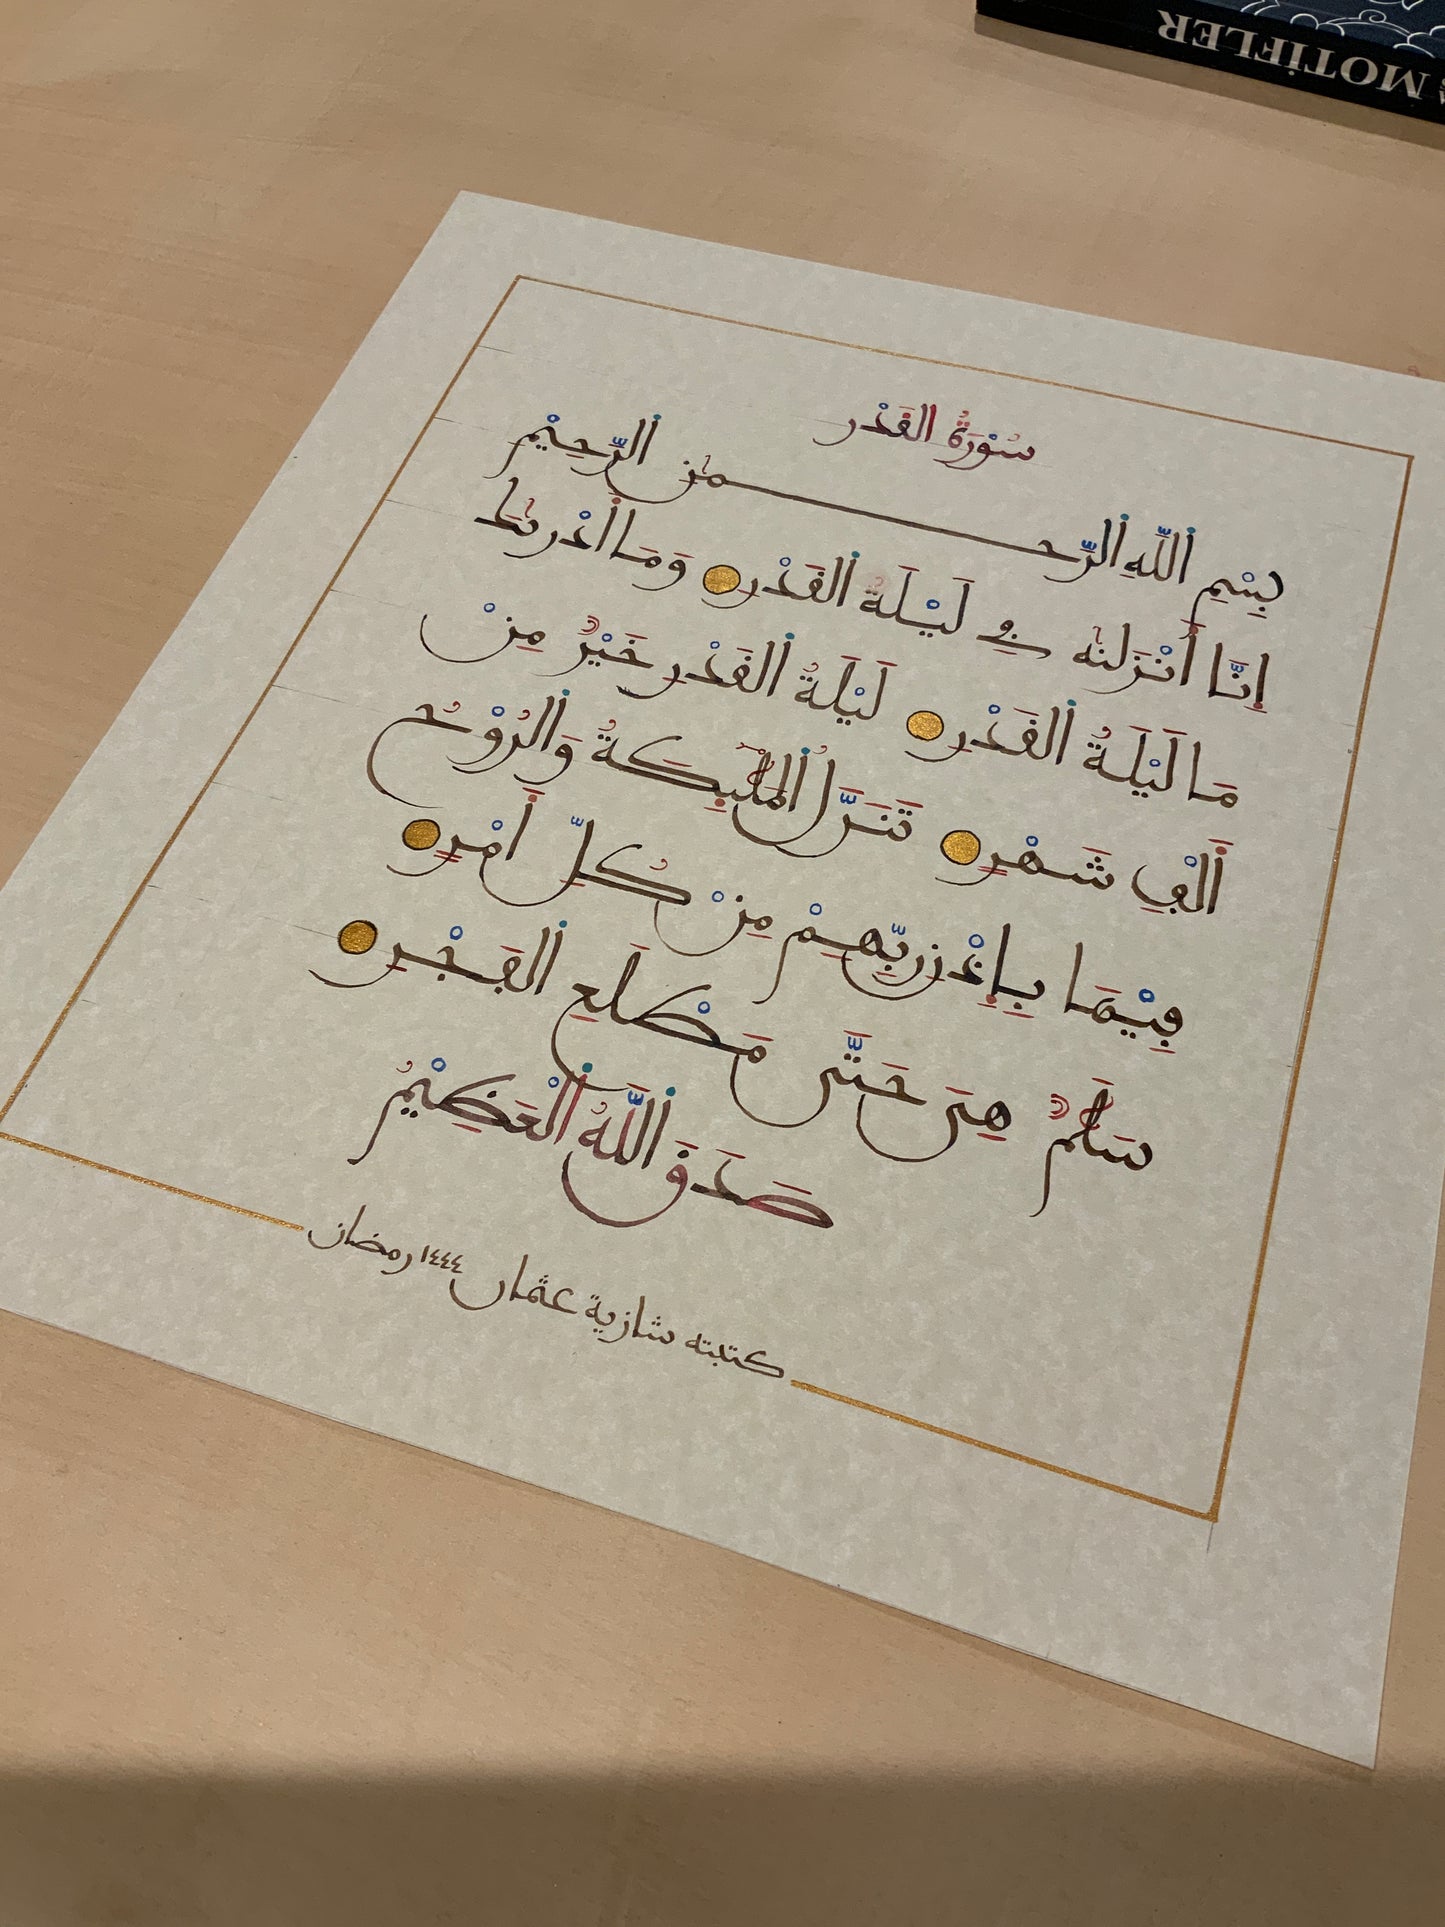 MOTİFLER
سُوْرَةُ القَدْر
بِسْمِ ٱللَّهِ ٱلرَّحـــمٰنِ ٱلرَّحِيْمِ
إِنَّا أَنْزَلْنٰهُ فِي لَيْلَةِ ٱلقَدْرِ وَمَا أَدْرىٰكَ
مَا لَيْلَةُ ٱلقَدْرِ لَيْلَةُ ٱلقَدْرِ خَيْرٌ مِنْ
أَلْفِ شَهْرٍ تَنَزَّلُ ٱلمَلٰٓئِكَةُ وَٱلرُوْحُ
فِيْهَا بِإِذْنِ رَبِّهِمْ مِنْ كُلِّ أَمْرٍ
سَلٰمٌ هِيَ حَتَّى مَطْلَعِ ٱلفَجْرِ
صَدَقَ ٱللَّهُ ٱلْعَظِيْمُ
كتبته شازية عثمان ١٤٤٤ رمضان